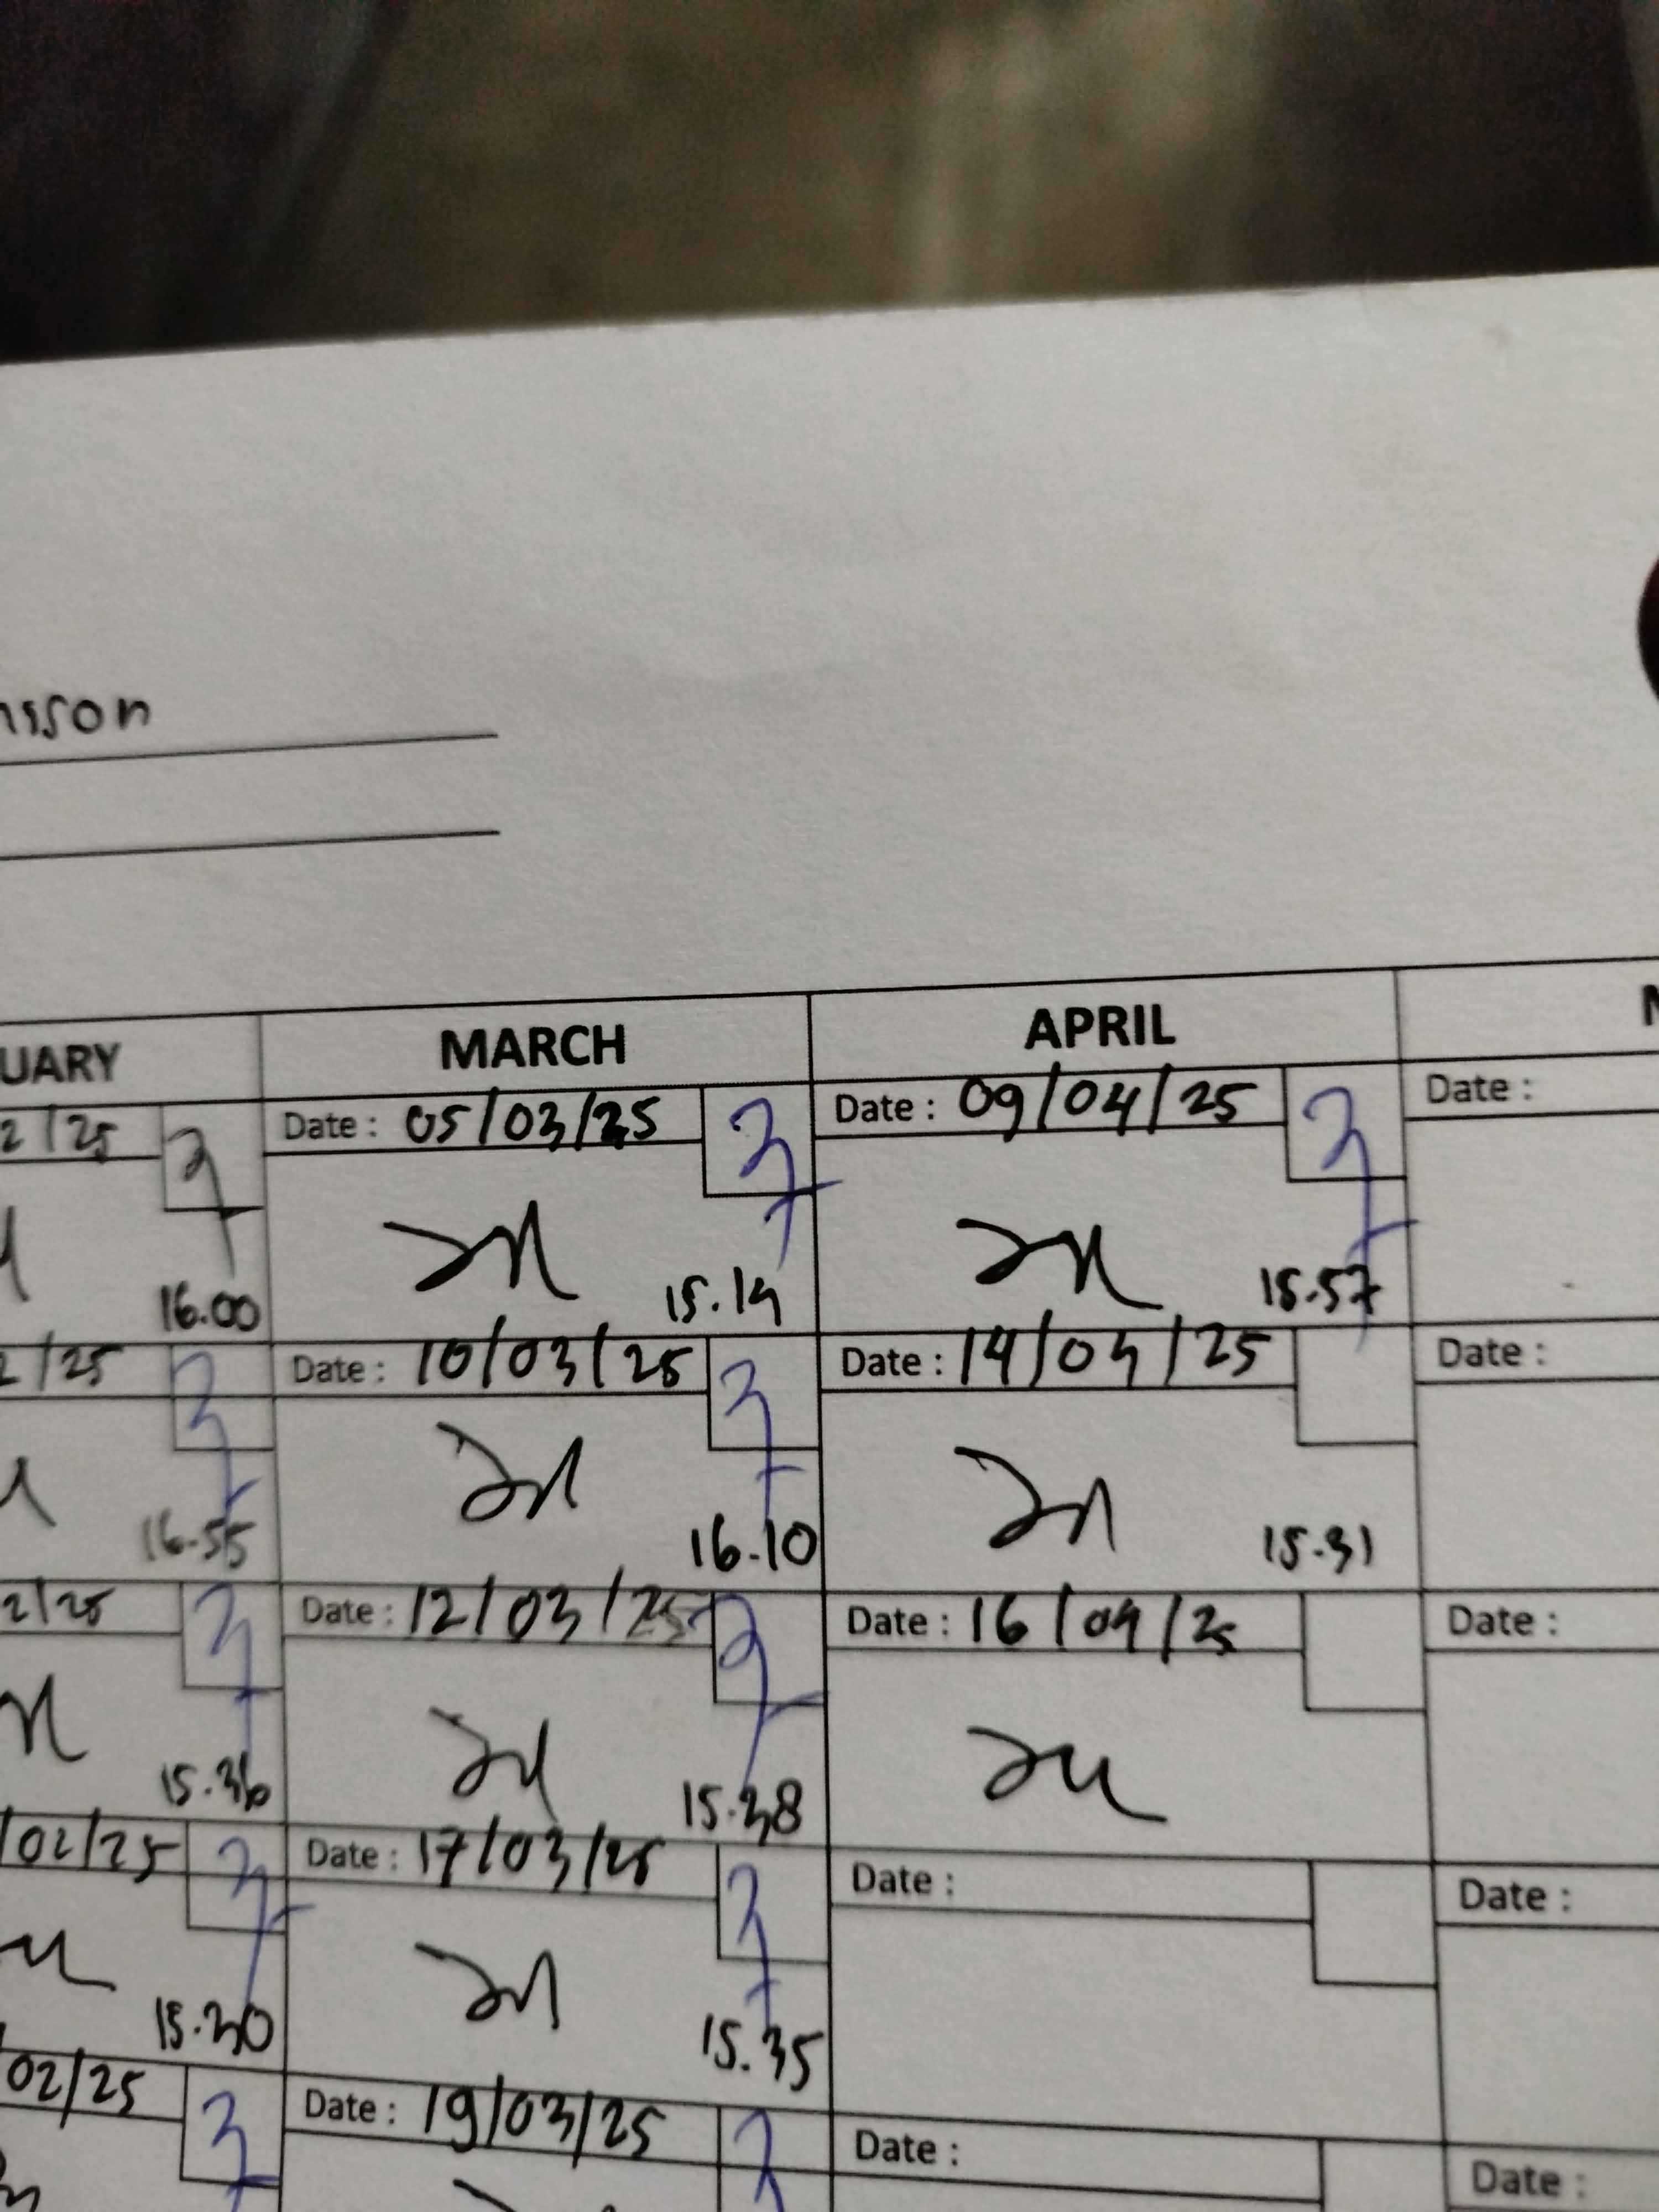 sson
UARY MARCH APRIL
2/25 Date : 05/03/25 Date : 09/04/25 Date :
16.00 15.14 15.57
2/25 Date : 10/03/25 Date : 14/04/25 Date :
16.55 16.10 15.31
2/25 Date : 12/03/25 Date : 16/04/25 Date :
15.36 15.38
/02/25 Date : 17/03/25 Date : Date :
15.30 15.35
02/25 Date : 19/03/25 Date : Date :